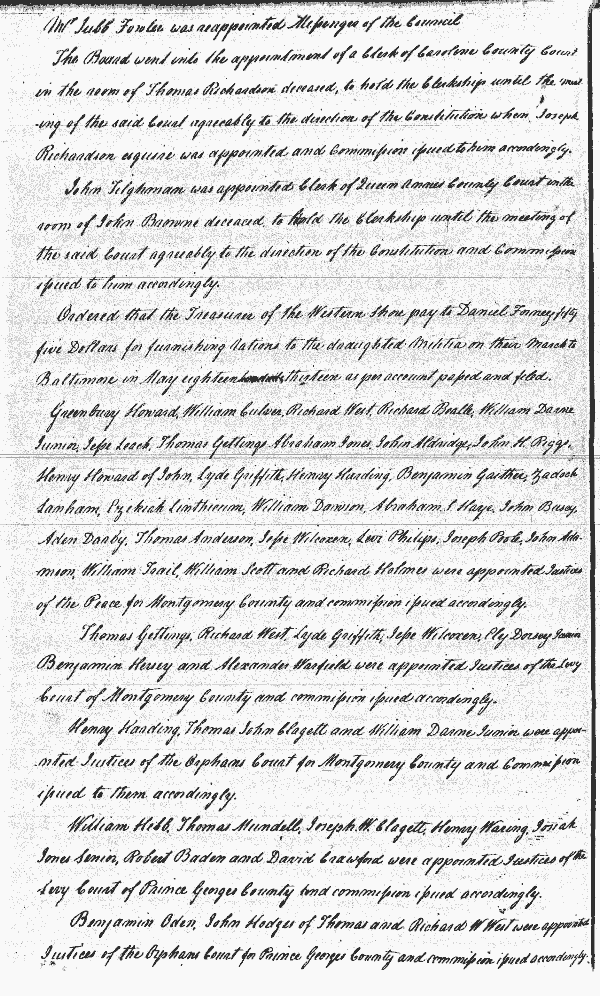 Mr Jubb Fowler was reappointed Messenger of the Council
The Board went into the appointment of a Clerk of Caroline County Court
in the room of Thomas Richardson deceased, to hold the Clerkship until the meet
-ing of the said Court agreeably to the direction of the Constitution when, Joseph
Richardson esquire was appointed and Commission issued to him accordingly.
John Tilghman was appointed Clerk of Queen Annes County Court in the
room of John Browne deceased, to hold the Clerkship until the meeting of
the said Court agreably to the direction of the Constitution and Commission
issued to him accordingly.
Ordered that the Treasurer of the Western Shore pay to Daniel Forney fifty
five Dollars for furnishing rations to the draughted Militia on their March to
Baltimore in May eighteen thirteen as per account passed and filed.
Greenbury Howard, William Culver, Richard West, Richard Bealle, William Darne
Junior, Jesse Leach, Thomas Gettings Abraham Jones, John Aldridge, John H. Riggs,
Henry Howard of John, Lyde Griffith, Henry Harding, Benjamin Gaither, Zadock
Lanham, Ezekiah Linthicum, William Dawson, Abraham S Haye, John Busey,
Aden Darby, Thomas Anderson, Jesse Wilcoxen, Levi Philips, Joseph Poole, John Ada-
mson, William Trail, William Scott and Richard Holmes were appointed Justices
of the Peace for Montgomery County and commission issued accordingly.
Thomas Gettings, Richard West, Lyde Griffith, Jesse Wilcoxen, Ely Dorsey Junior
Benjamin Hersey and Alexander Warfield were appointed Justices of the Levy
Court of Montgomery County and commission issued accordingly.
Henry Harding, Thomas John Clagett and William Darne Junior were appoi-
nted Justices of the Orphans Court for Montgomery County and Commission
issued to them accordingly.
William Hebb, Thomas Mundell, Joseph W. Clagett, Henry Waring, Josiah
Jones Senior, Robert Baden and David Crawford were appointed Justices of the
Levy Court of Prince Georges County and commission issued accordingly.
Benjamin Oden, John Hodges of Thomas and Richard W West were appointed
Justices of the Orphans Court for Prince Georges County and commission issued accordingly.